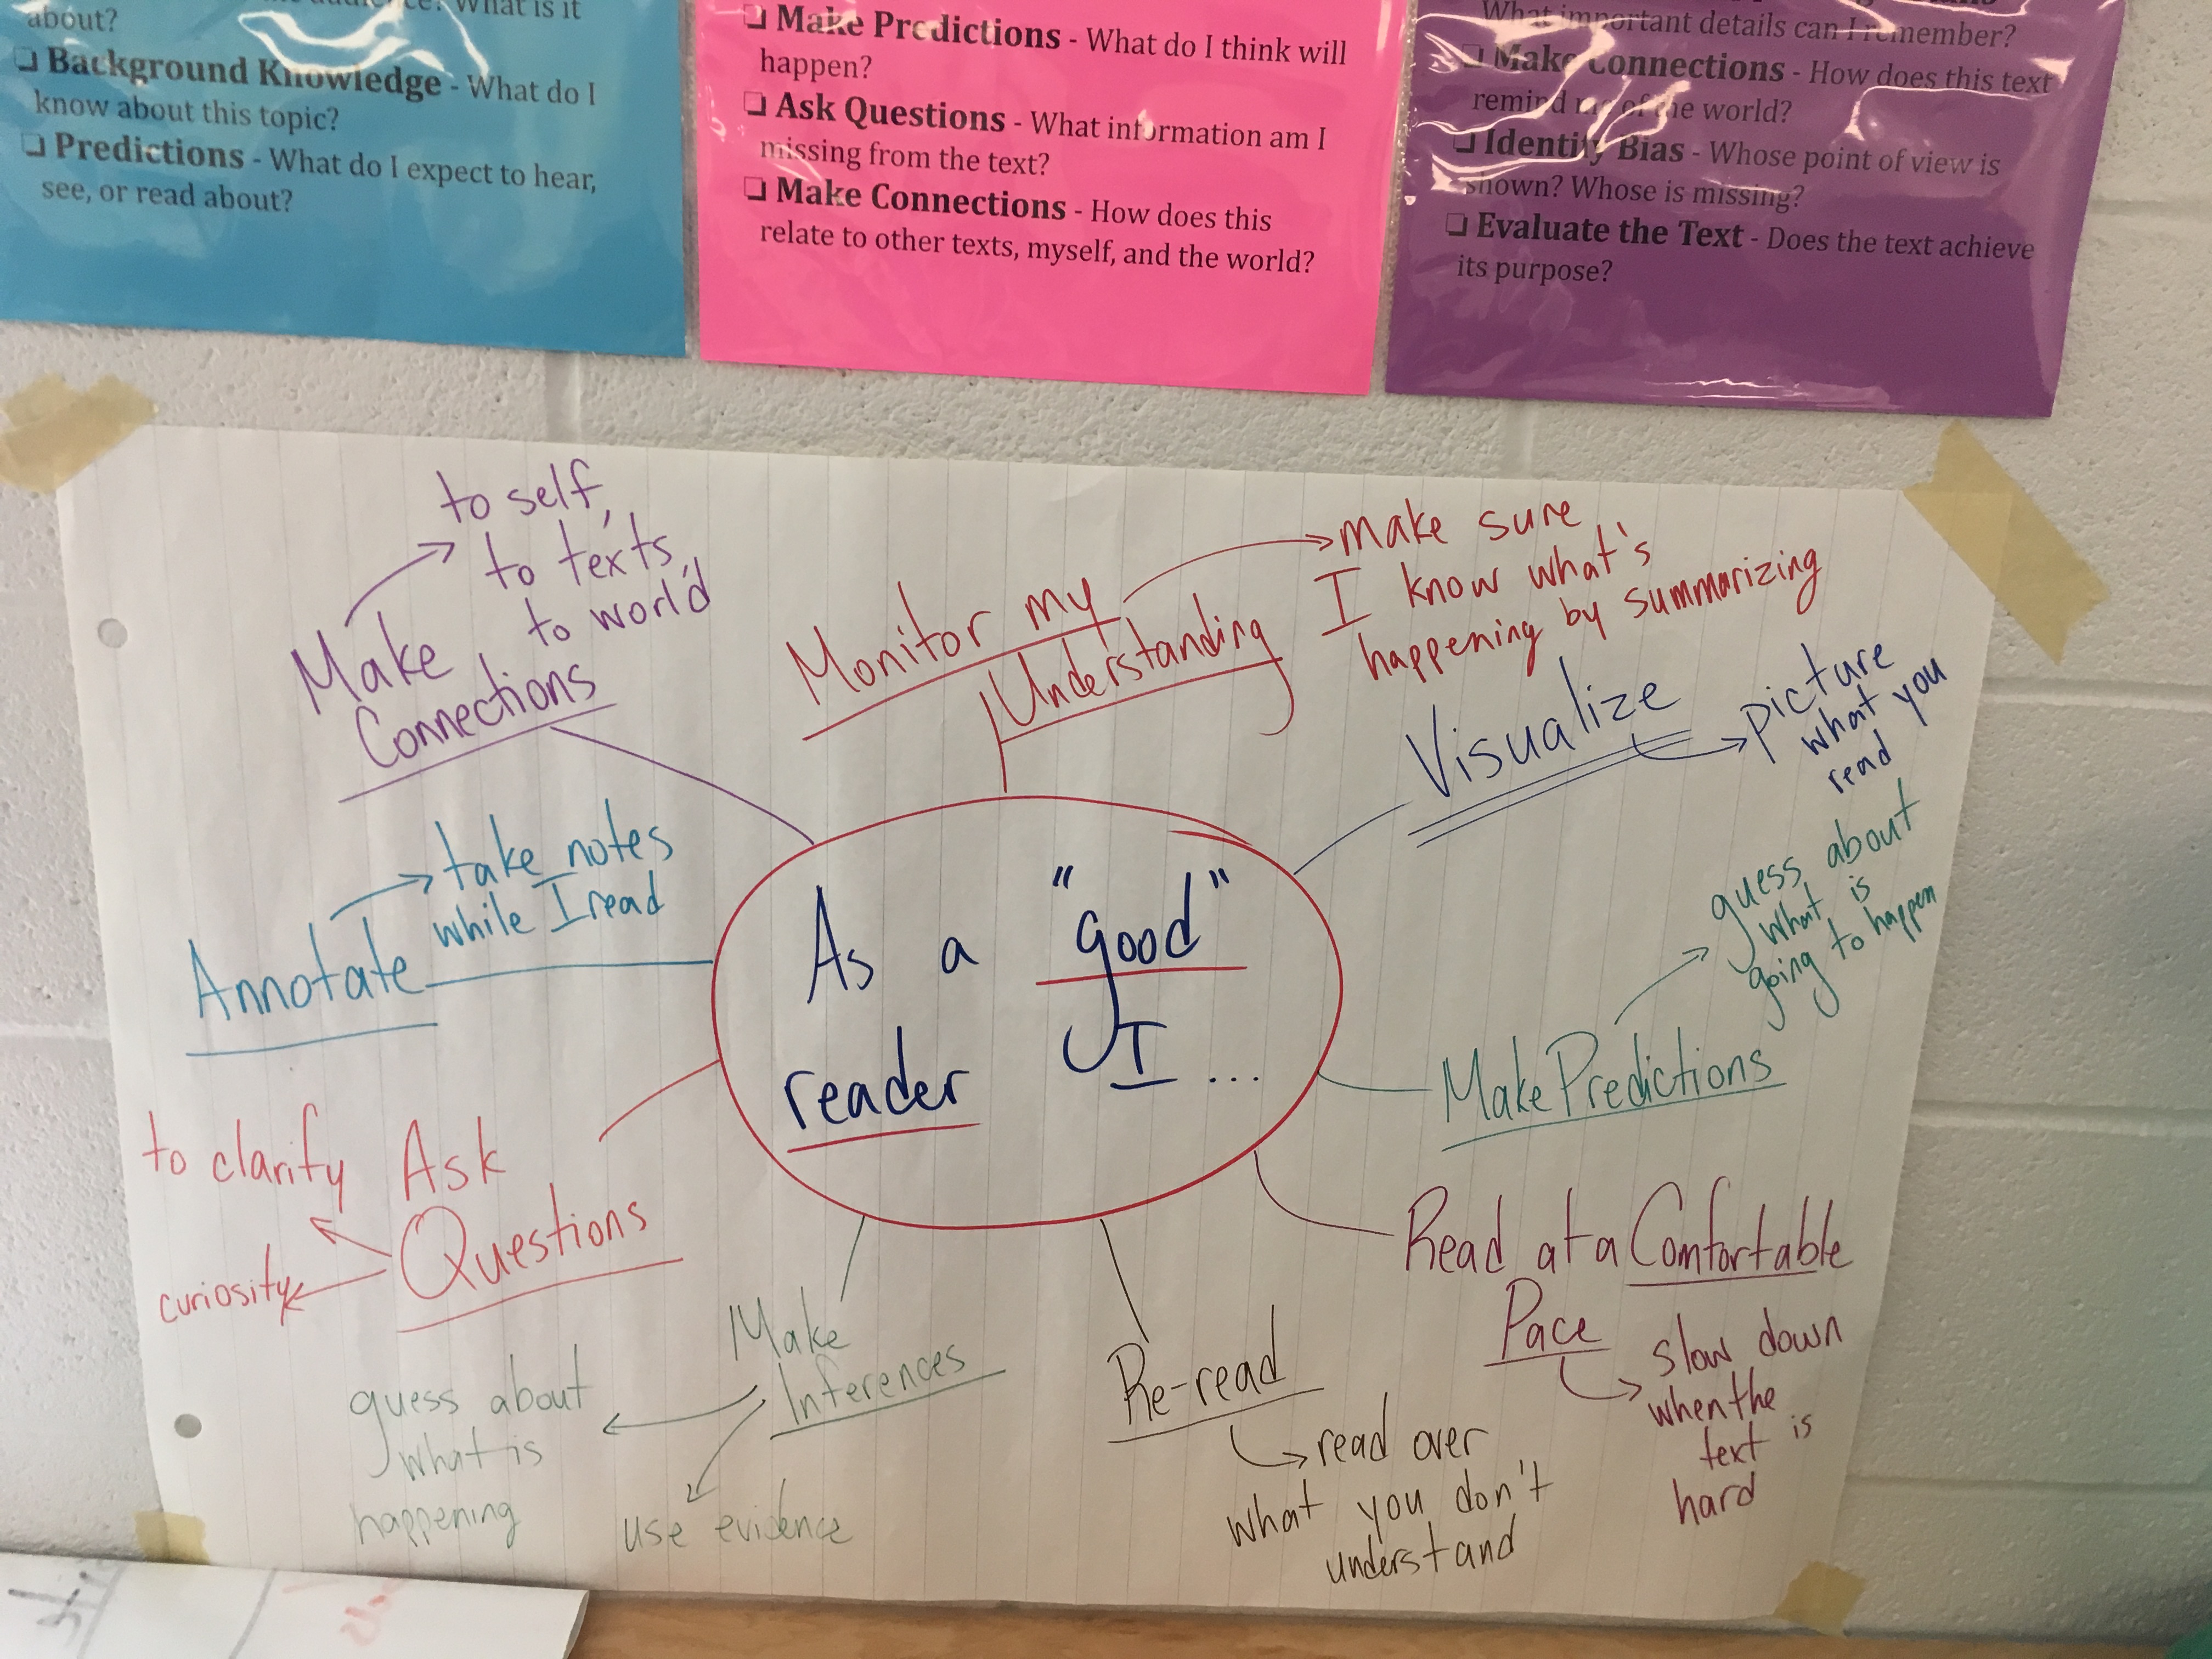 about?
❑ Background Knowledge - What do I
know about this topic?
❑ Predictions - What do I expect to hear,
see, or read about?
❑ Make Predictions - What do I think will
happen?
❑ Ask Questions - What information am I
missing from the text?
❑ Make Connections - How does this
relate to other texts, myself, and the world?
What important details can I remember?
❑ Make Connections - How does this text
remind me of the world?
❑ Identify Bias - Whose point of view is
shown? Whose is missing?
❑ Evaluate the Text - Does the text achieve
its purpose?
As a "good"
reader I ...
Make
Connections
to self,
to texts,
to world
Monitor my
Understanding
make sure
I know what's
happening by summarizing
Visualize
picture
what you
read
Make Predictions
guess about
what is
going to happen
Read at a Comfortable
Pace
slow down
when the
text is
hard
Re-read
read over
what you don't
understand
Make
Inferences
guess about
what is
happening
use evidence
Ask
Questions
to clarify
curiosity
Annotate
take notes
while I read